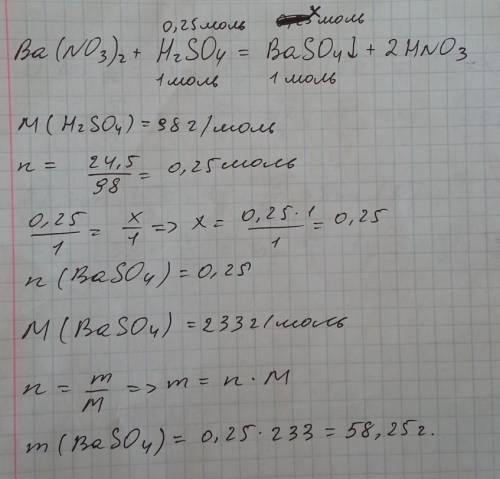 0,25 моль x моль
Ba(NO₃)₂ + H₂SO₄ = BaSO₄↓ + 2HNO₃
1 моль 1 моль
M(H₂SO₄) = 98 г/моль
n = 24,5/98 = 0,25 моль
0,25/1 = x/1 => x = 0,25·1/1 = 0,25
n(BaSO₄) = 0,25
M(BaSO₄) = 233 г/моль
n = m/M => m = n·M
m(BaSO₄) = 0,25·233 = 58,25 г.